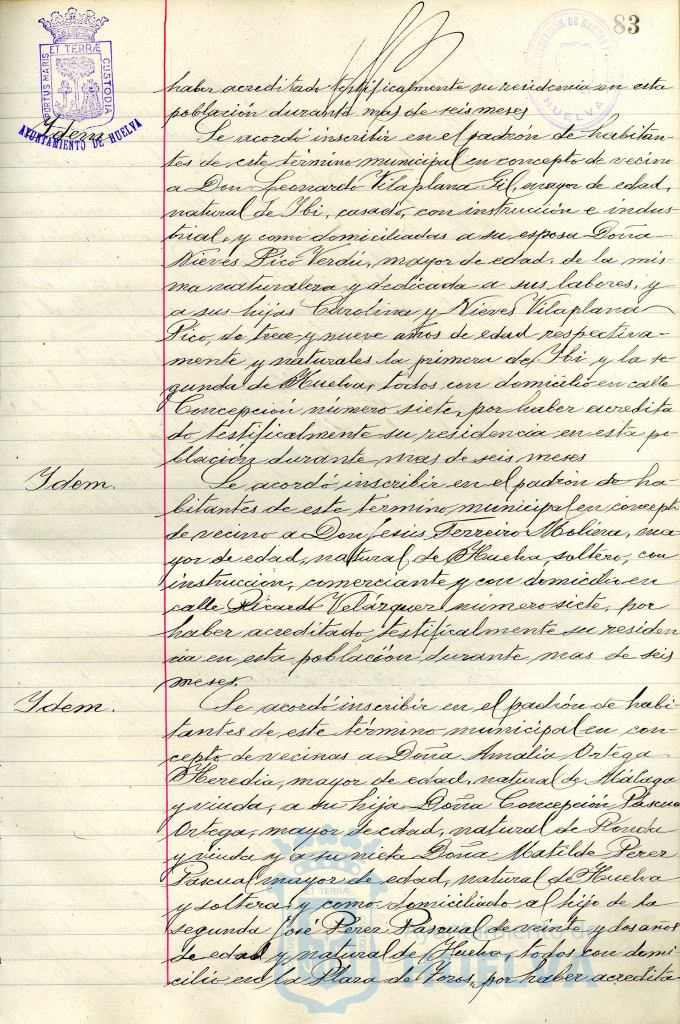 83
PORTUS MARIS ET TERRÆ CUSTODIA
AYUNTAMIENTO DE HUELVA
HUELVA
haber acreditado testificalmente su residencia en esta
población durante mas de seis meses
Ydem.
Se acordó inscribir en el padrón de habitan-
tes de este término municipal en concepto de vecino
a Don Leonardo Vilaplana Gil, mayor de edad,
natural de Ibi, casado, con instrucción e indus-
trial, y como domiciliadas a su esposa Doña
Nieves Picó Verdú, mayor de edad, de la mis-
ma naturaleza y dedicada a sus labores, y
a sus hijas Carolina y Nieves Vilaplana
Pico, de trece y nueve años de edad respectiva-
mente y naturales la primera de Ibi y la se-
gunda de Huelva, todos con domicilio en calle
Concepción número siete, por haber acredita
do testificalmente su residencia en esta po-
blación durante mas de seis meses
Ydem.
Se acordó inscribir en el padrón de ha-
bitantes de este término municipal en concepto
de vecino a Don Jesús Ferreiro Moliera, ma-
yor de edad, natural de Huelva, soltero, con
instruccion, comerciante y con domicilio en
calle Ricardo Velázquez número siete, por
haber acreditado testificalmente su residen
cia en esta población durante mas de seis
meses.
Ydem.
Se acordó inscribir en el padrón de habi-
tantes de este término municipal en con-
cepto de vecinas a Doña Amalia Ortega
Heredia, mayor de edad, natural de Málaga
y viuda, a su hija Doña Concepción Pascual
Ortega, mayor de edad, natural de Ronda
y viuda y a su nieta Doña Matilde Perez
Pascual, mayor de edad, natural de Huelva
y soltera, y como domiciliado al hijo de la
segunda José Pérez Pascual de veinte y dos años
de edad y natural de Huelva, todos con domi-
cilio en la Plaza de Toros, por haber acredita-
ET TERRÆ
Ayuntamiento de
HUELVA